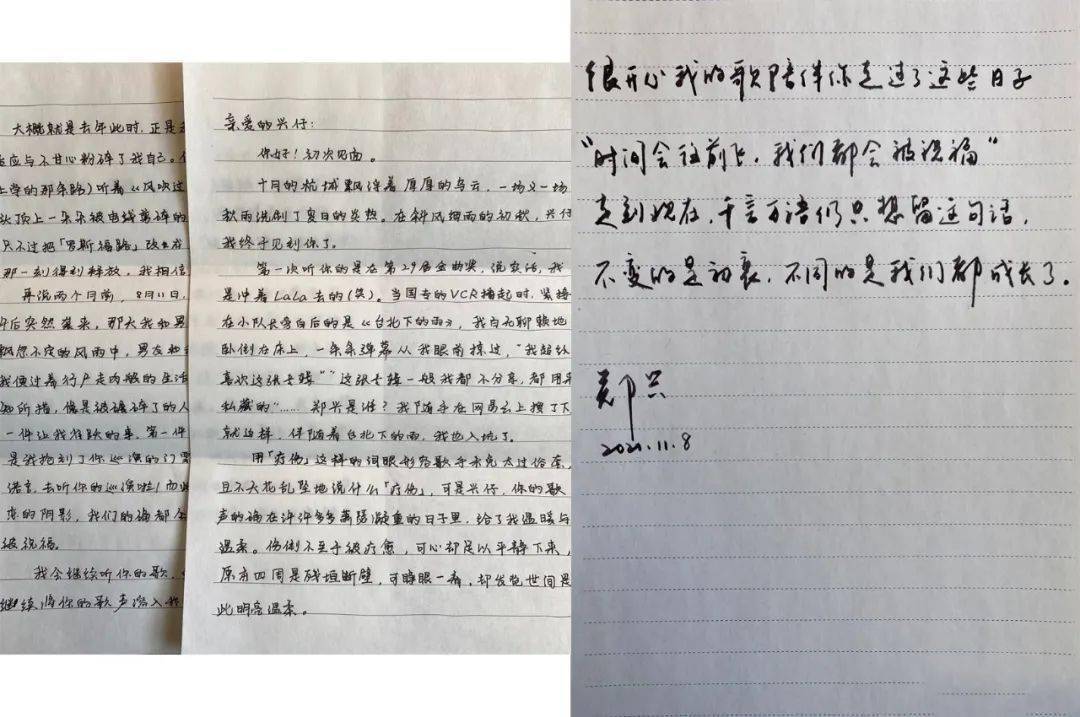 大概就是去年此时，正是
应与不甘心粉碎了我自己。
上学的那条路）听着《风吹过
头顶上一朵朵被电线剪碎的
只不过把「罗斯福路」改
那一刻得到释放，我相信
再说两个月前，8月11日，
午后突然袭来，那天我和男
飘忽不定的风雨中，男友和
我便过着行尸走肉般的生活
知所措，像是被碾碎了的人
一件让我雀跃的事，第一件
是我抢到了你巡演的门票
诺言，去听你的巡演啦！而
恋的阴影，我们的
被祝福。
我会继续听你的歌，
继续将你的歌声溶入我
亲爱的兴仔：
你好！初次见面。
十月的杭城飘浮着厚厚的乌云，一场又一场
秋雨洗刷了夏日的炎热。在斜风细雨的初秋，兴仔
我终于见到你了。
第一次听你的是在第29届金曲奖，说实话，我
是冲着LaLa去的(笑)。当国专的VCR播起时，紧接
在小队长旁白后的是《台北下的雨》，我百无聊赖地
卧倒在床上，一条条弹幕从我眼前掠过，"我超级
喜欢这张专辑""这张专辑一般我都不分享，都用来
私藏的"……郑兴是谁？我随手在网易云上搜了下
就这样，伴随着台北下的雨，我也入坑了。
用「疗伤」这样的词眼形容歌手未免太过俗套，
且不天花乱坠地说什么「疗伤」，可是兴仔，你的歌
声的确在许许多多萧瑟凝重的日子里，给了我温暖与
温柔。伤倒不至于被疗愈，可心却足以平静下来，
原有四周是残垣断壁，可睁眼一看，却发觉世间是
此明亮温柔。
很开心我的歌陪伴你走过了这些日子
"时间会往前飞，我们都会被祝福"
走到现在，千言万语们只想留这句话，
不变的是初衷，不同的是我们都成长了。
郑兴
2021.11.8